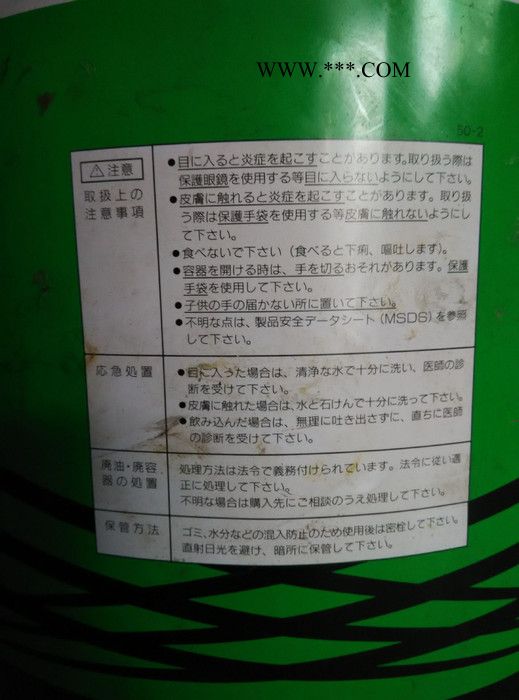 WWW.***.COM
50-2
⚠注意
取扱上の
注意事項
●目に入ると炎症を起こすことがあります。取り扱う際は
保護眼鏡を使用する等目に入らないようにして下さい。
●皮膚に触れると炎症を起こすことがあります。取り扱
う際は保護手袋を使用する等皮膚に触れないようにし
て下さい。
●食べないで下さい（食べると下痢、嘔吐します）。
●容器を開ける時は、手を切るおそれがあります。保護
手袋を使用して下さい。
●子供の手の届かない所に置いて下さい。
●不明な点は、製品安全データシート（MSDS）を参照
して下さい。
応急処置
●目に入った場合は、清浄な水で十分に洗い、医師の診
断を受けて下さい。
●皮膚に触れた場合は、水と石けんで十分に洗って下さい。
●飲み込んだ場合は、無理に吐き出さずに、直ちに医師
の診断を受けて下さい。
廃油・廃容
器の処置
処理方法は法令で義務付けられています。法令に従い適
正に処理して下さい。
不明な場合は購入先にご相談のうえ処理して下さい。
保管方法
ゴミ、水分などの混入防止のため使用後は密栓して下さい。
直射日光を避け、暗所に保管して下さい。